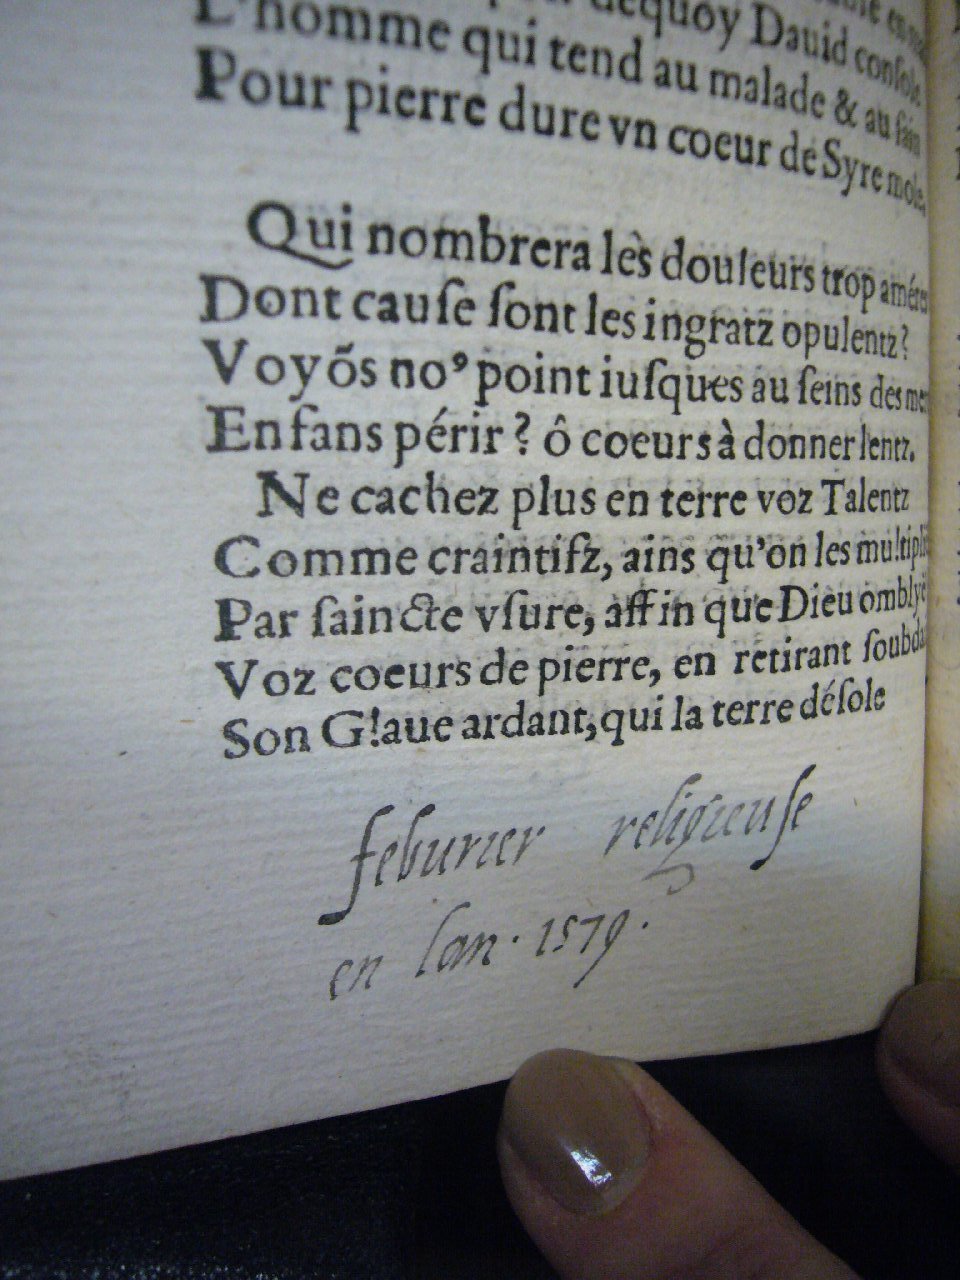 dequoy Dauid conſole
L'homme qui tend au malade & au ſain
Pour pierre dure vn coeur de Syre mole.
Qui nombrera lès douleurs trop améres
Dont cauſe ſont les ingratz opulentz?
Voyõs noꝰ point iuſques au ſeins des me
Enfans périr? ô coeurs à donner lentz.
Ne cachez plus en terre voz Talentz
Comme craintifz, ains qu'on les multipli
Par ſaincte vſure, affin que Dieu omblye
Voz coeurs de pierre, en retirant ſoubdai
Son Glaue ardant, qui la terre déſole
feburier religieuſe
en lan · 1579 ·